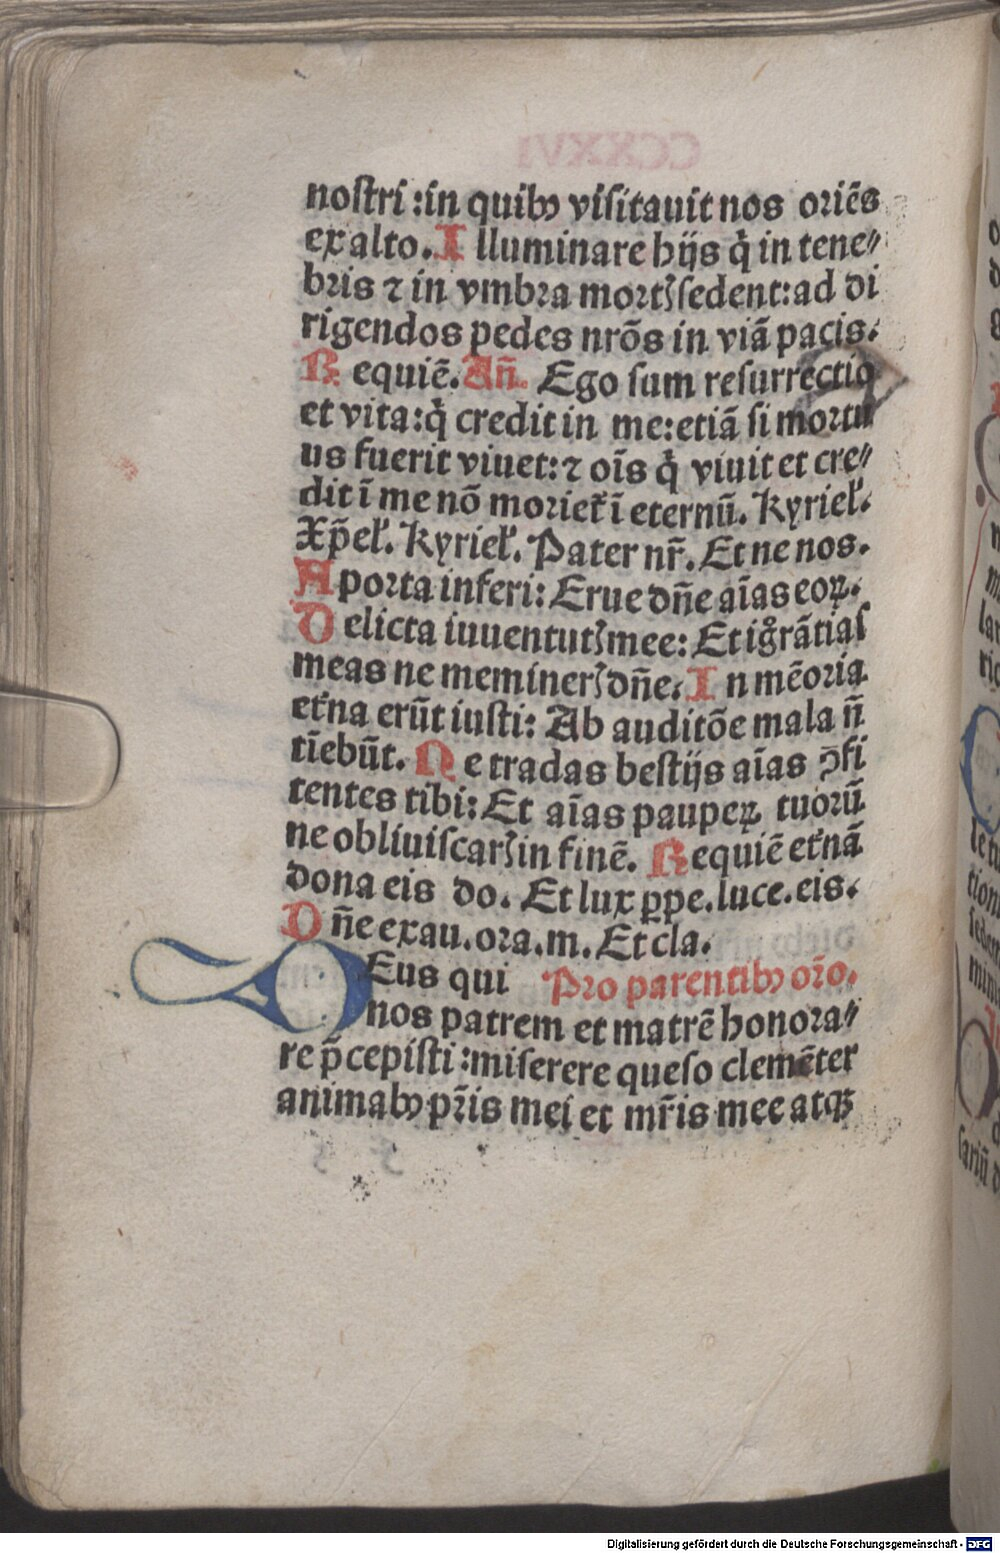 nostri :in quibꝯ visitauit nos oriēs
ex alto. Illuminare hijs q̇ in tene⸗
bris ⁊ in vmbra mortꝭ sedent: ad di
rigendos pedes nrōs in viā pacis.
Requiē. Añ. Ego sum resurrectio
et vita: q̇ credit in me: etiā si mortu
us fuerit viuet: ⁊ oīs q̇ viuit et cre⸗
dit ī me nō moriet᷑ ī eternū. Kyrieł.
Xp̄eł. Kyrieł. Pater nr̄. Et ne nos.
A porta inferi: Erue dn̄e aīas eoꝝ.
Delicta iuuentutꝭ mee: Et ig̊rātias
meas ne meminerꝭ dn̄e. In mēoria
et᷑na erūt iusti: Ab auditōe mala n̄
tīebūt. Ne tradas bestijs aīas ꝯ̄fi
tentes tibi: Et aīas paupeꝝ tuorū
ne obliuiscarꝭ in finē. Requiē et᷑nā
dona eis do. Et lux ꝑpe. luce. eis.
Dn̄e exau. ora. m. Et cla.
DEus qui Pro parentibꝯ or̄o.
nos patrem et matrē honora⸗
re p̄cepisti : miserere queso clemēter
animabꝯ pr̄is mei et mr̄is mee atqꝫ
Digitalisierung gefördert durch die Deutsche Forschungsgemeinschaft - DFG